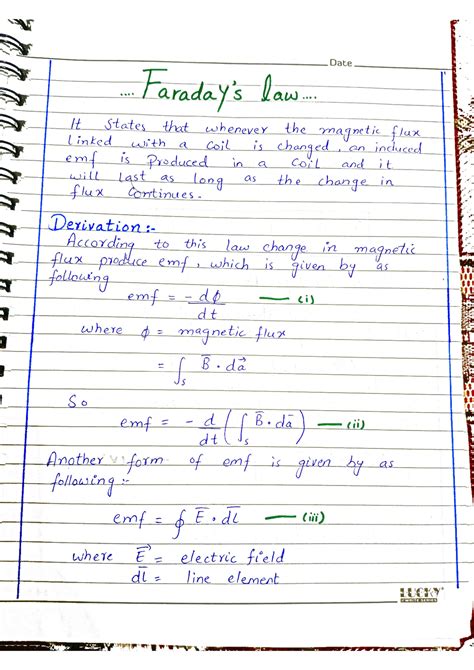 Date
.... Faraday's law ....
It states that whenever the magnetic flux
linked with a coil is changed, an induced
emf is Produced in a coil and it
will last as long as the change in
flux continues.
Derivation:-
According to this law change in magnetic
flux produce emf, which is given by as
following
emf = - dϕ/dt — (i)
where ϕ = magnetic flux
= ∫s B̅ · da⃗
So
emf = - d/dt (∫s B̅ · da̅) — (ii)
Another form of emf is given by as
following :-
emf = ∮ E̅ · dl̅ — (iii)
where E⃗ = electric field
dl̅ = line element
LUCKY